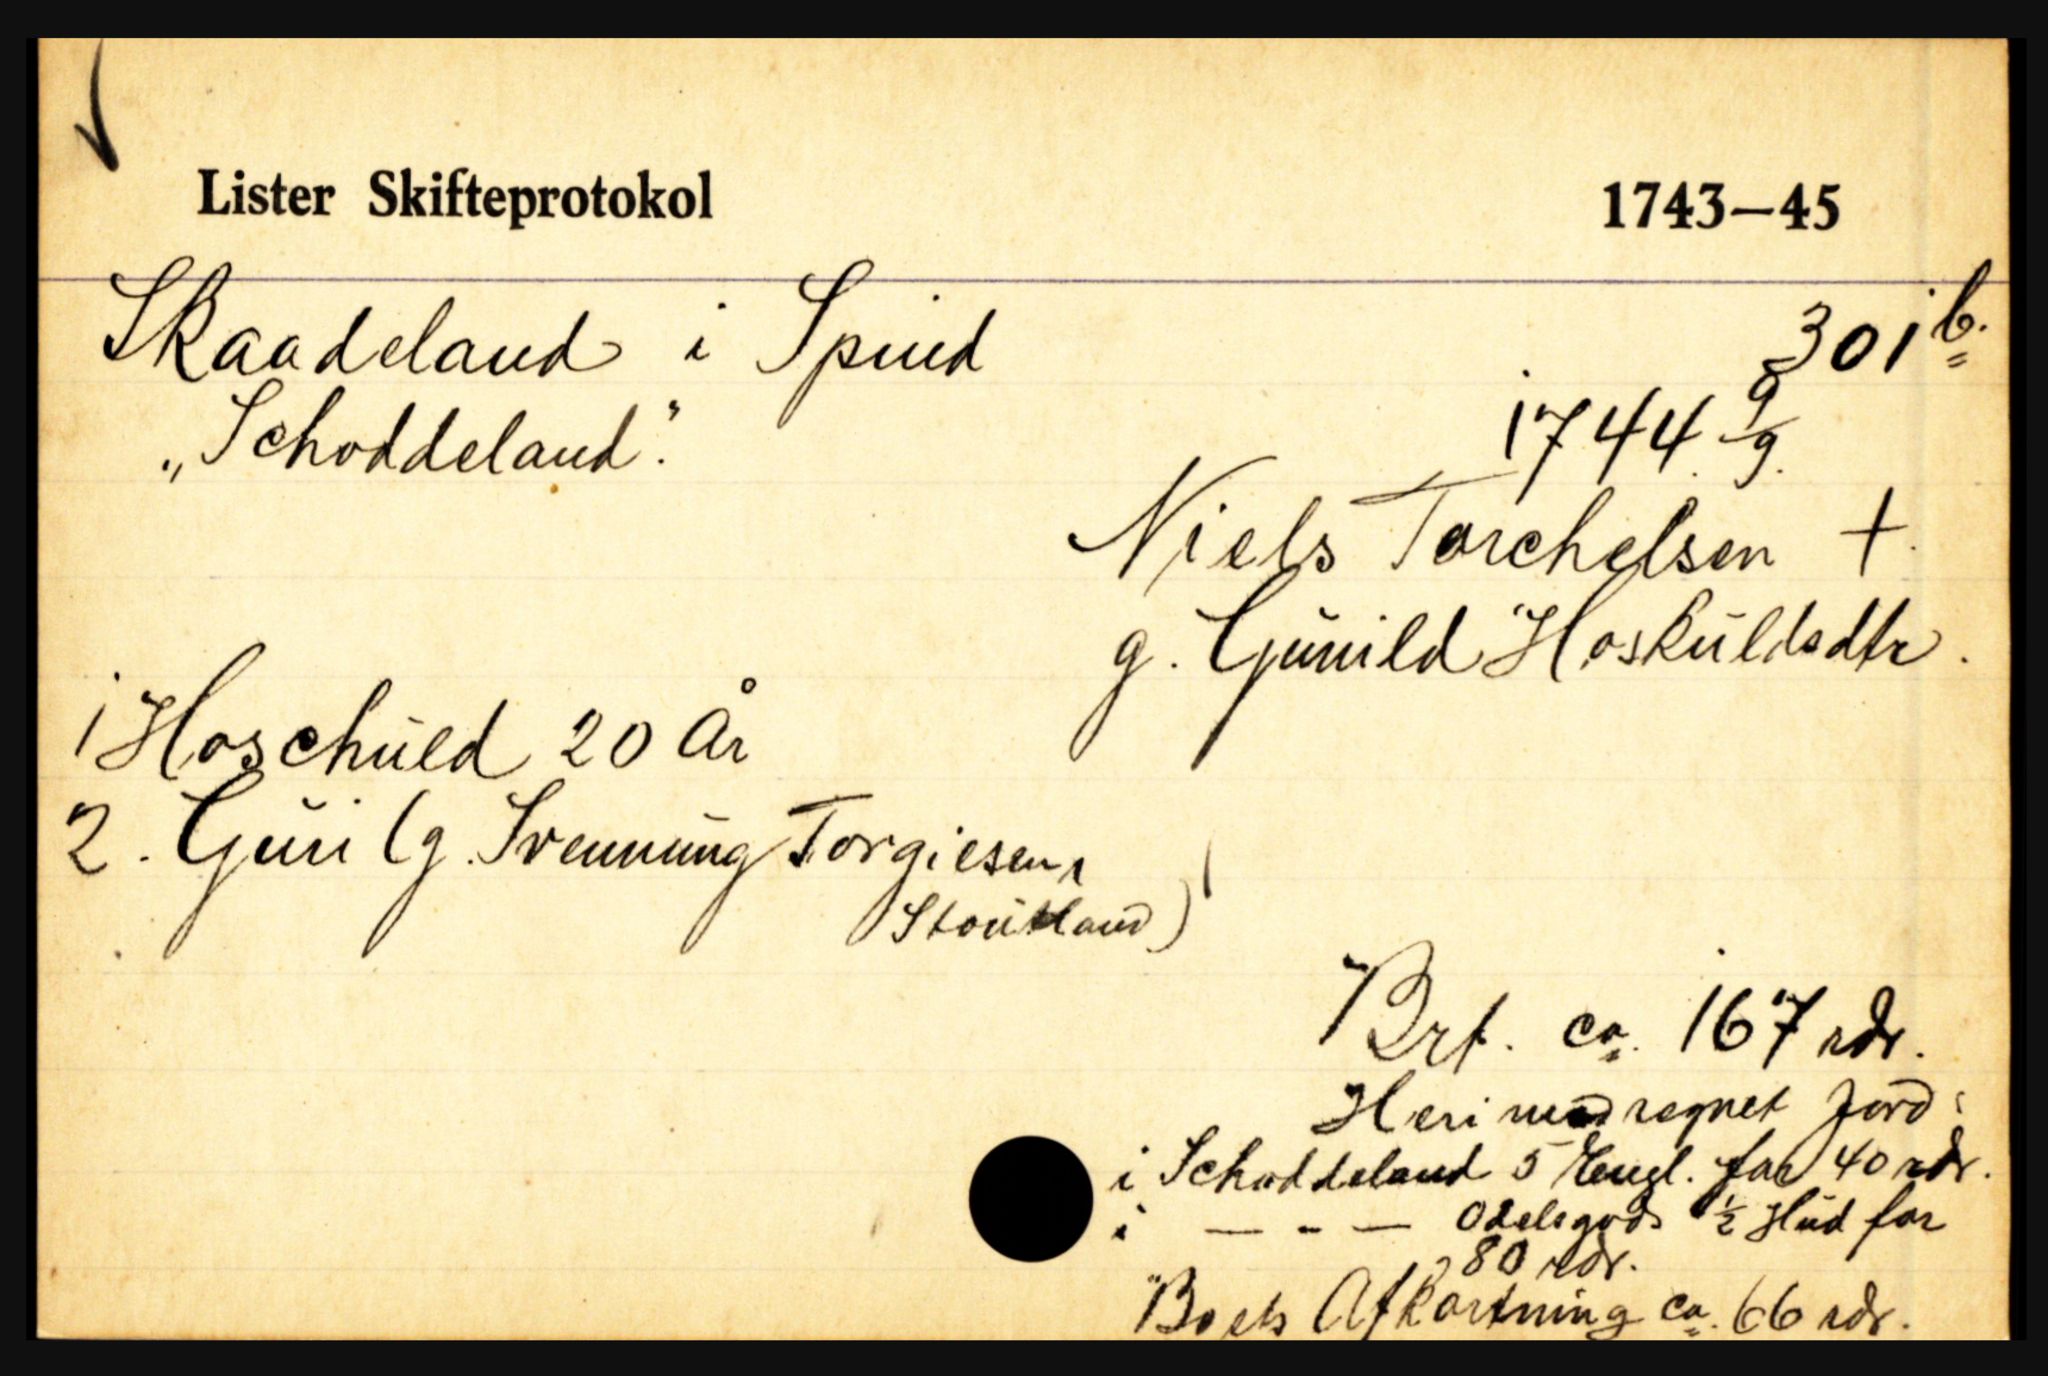 Lister Skifteprotokol 1743—45
Skaadeland i Spind 301 b.
„Schoddeland”. 1744 9/9.
Niels Torchelsen †.
g. Gunild Hoskuldsdtr.
1 Hoschuld 20 År
2. Guri (g. Svennung Torgiesen,
Stoutland)
Brt. ca. 167 rdr.
Heri medregnet Jord:
i Schoddeland 5 Engl. for 40 rdr.
i — - — Odelsgods 1/2 Hud for
80 rdr.
Boets Afkortning ca. 66 rdr.